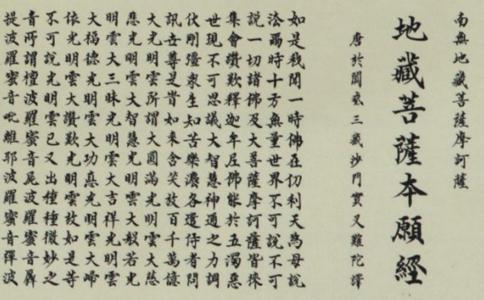 南無地藏菩薩摩訶薩
地藏菩薩本願經
唐於闐國三藏沙門實叉難陀譯
如是我聞一時佛在忉利天為母說
法爾時十方無量世界不可說不可
說一切諸佛及大菩薩摩訶薩皆來
集會讚歎釋迦牟尼佛能於五濁惡
世現不可思議大智慧神通之力調
伏剛彊眾生知苦樂灋各遣侍者問
訊世尊是旹如來含笑放百千萬億
大光明雲所謂大圓滿光明雲大慈
悲光明雲大智慧光明雲大般若光
明雲大三昧光明雲大吉祥光明雲
大福德光明雲大功德光明雲大歸
依光明雲大讚歎光明雲放如是等
不可說光明雲已又出種種微妙之
音所謂檀波羅蜜音尸波羅蜜音羼
提波羅蜜音毗離耶波羅蜜音禪波